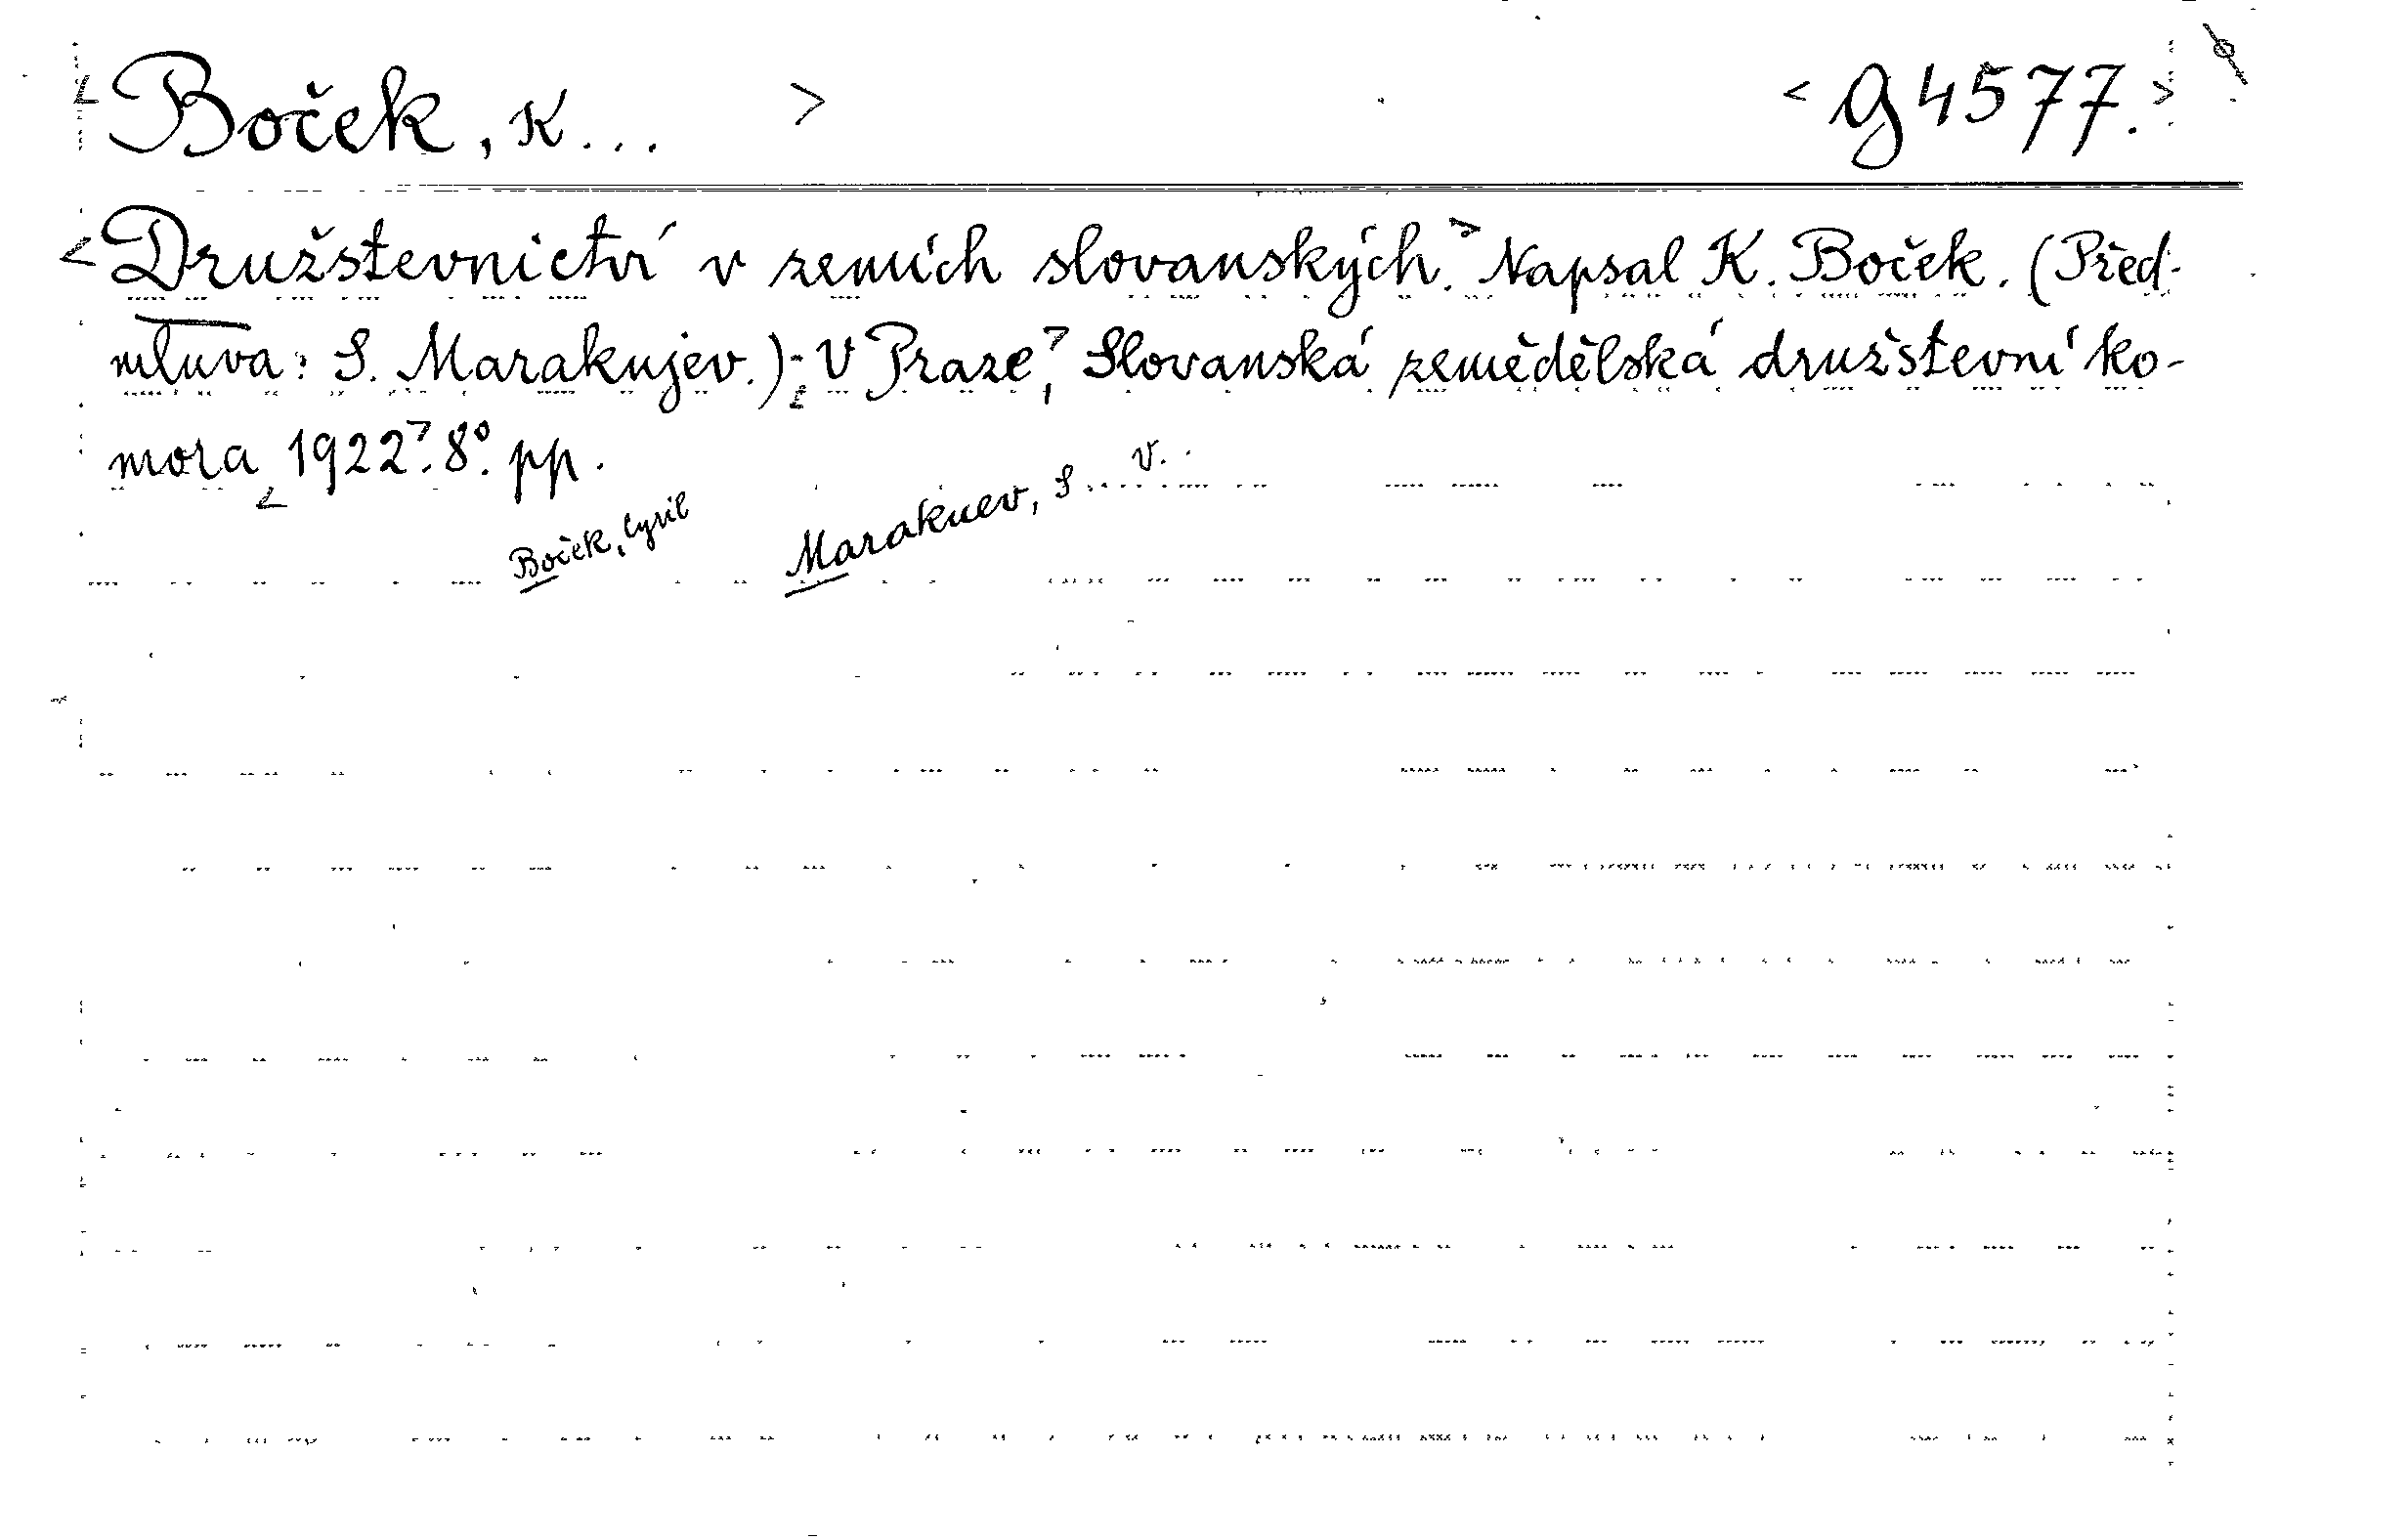 <Boček, K... > <g 4577.>
<Družstevnictví v zemích slovanských.> Napsal K. Boček. (Před-
mluva: S. Marakujev.) - <V Praze>, Slovanská zemědělská družstevní ko-
mora, <1922>. 8º. pp.
Boček, Cyril
Marakuev, S... V...